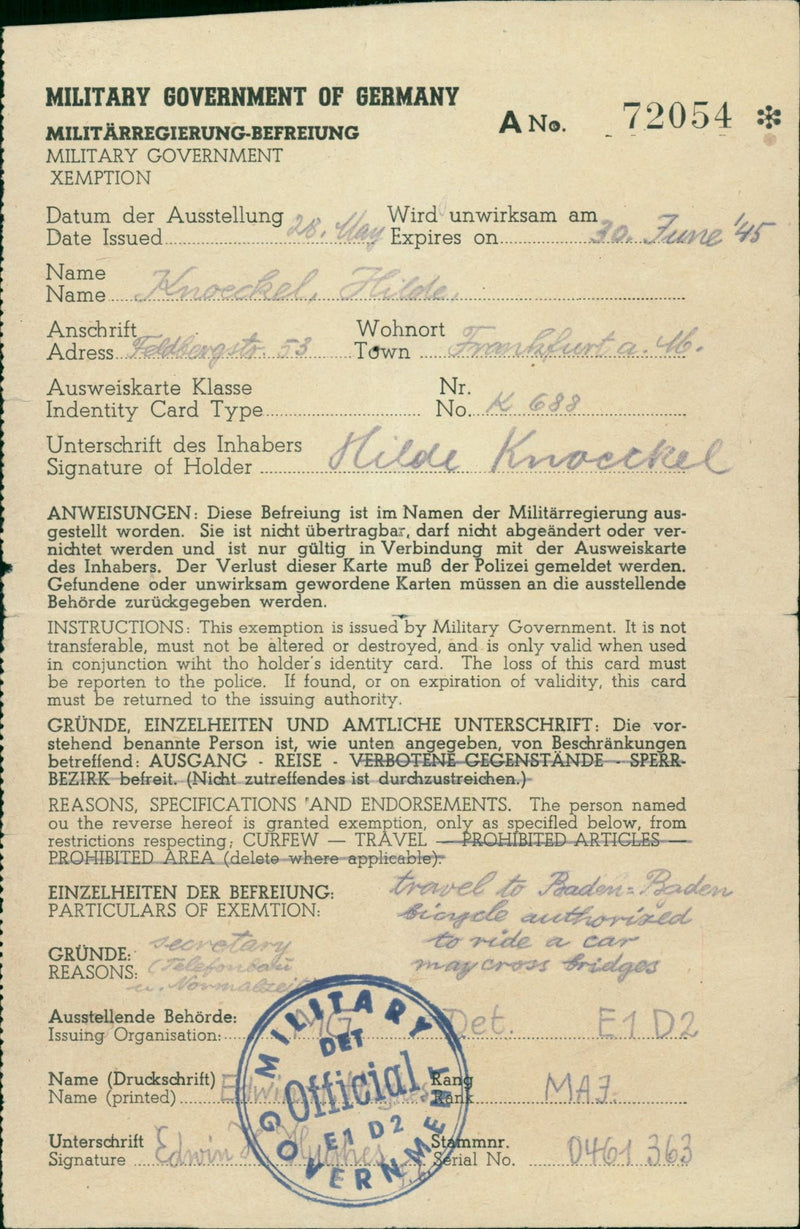 MILITARY GOVERNMENT OF GERMANY
MILITÄRREGIERUNG-BEFREIUNG
MILITARY GOVERNMENT
XEMPTION
A No. 72054 *
Datum der Ausstellung Wird unwirksam am
Date Issued 28. May Expires on 30. June '45
Name
Name Knoeckel, Hilde.
Anschrift Wohnort
Adress Feldbergstr. 53 Town Frankfurt a. M.
Ausweiskarte Klasse Nr.
Indentity Card Type No. K 688
Unterschrift des Inhabers
Signature of Holder Hilde Knoeckel
ANWEISUNGEN: Diese Befreiung ist im Namen der Militärregierung aus-
gestellt worden. Sie ist nicht übertragbar, darf nicht abgeändert oder ver-
nichtet werden und ist nur gültig in Verbindung mit der Ausweiskarte
des Inhabers. Der Verlust dieser Karte muß der Polizei gemeldet werden.
Gefundene oder unwirksam gewordene Karten müssen an die ausstellende
Behörde zurückgegeben werden.
INSTRUCTIONS: This exemption is issued by Military Government. It is not
transferable, must not be altered or destroyed, and is only valid when used
in conjunction wiht tho holder's identity card. The loss of this card must
be reporten to the police. If found, or on expiration of validity, this card
must be returned to the issuing authority.
GRÜNDE, EINZELHEITEN UND AMTLICHE UNTERSCHRIFT: Die vor-
stehend benannte Person ist, wie unten angegeben, von Beschränkungen
betreffend: AUSGANG - REISE - VERBOTENE GEGENSTÄNDE - SPERR-
BEZIRK befreit. (Nicht zutreffendes ist durchzustreichen.)
REASONS, SPECIFICATIONS AND ENDORSEMENTS. The person named
ou the reverse hereof is granted exemption, only as specified below, from
restrictions respecting; CURFEW — TRAVEL — PROHIBITED ARTICLES —
PROHIBITED AREA (delete where applicable).
EINZELHEITEN DER BEFREIUNG: travel to Baden-Baden
PARTICULARS OF EXEMTION: bicycle authorized
to ride a car
may cross bridges
GRÜNDE: secretary
REASONS: (Telefonbau
u. Normalzeit
Ausstellende Behörde:
Issuing Organisation: MG Det. E1 D2
Name (Druckschrift) Rang
Name (printed) Edwin Rank MAJ.
Unterschrift Stammnr.
Signature Edwin Hughes Serial No. 0461 363
MILITARY GOVERNMENT
DET
Official
E1 D2